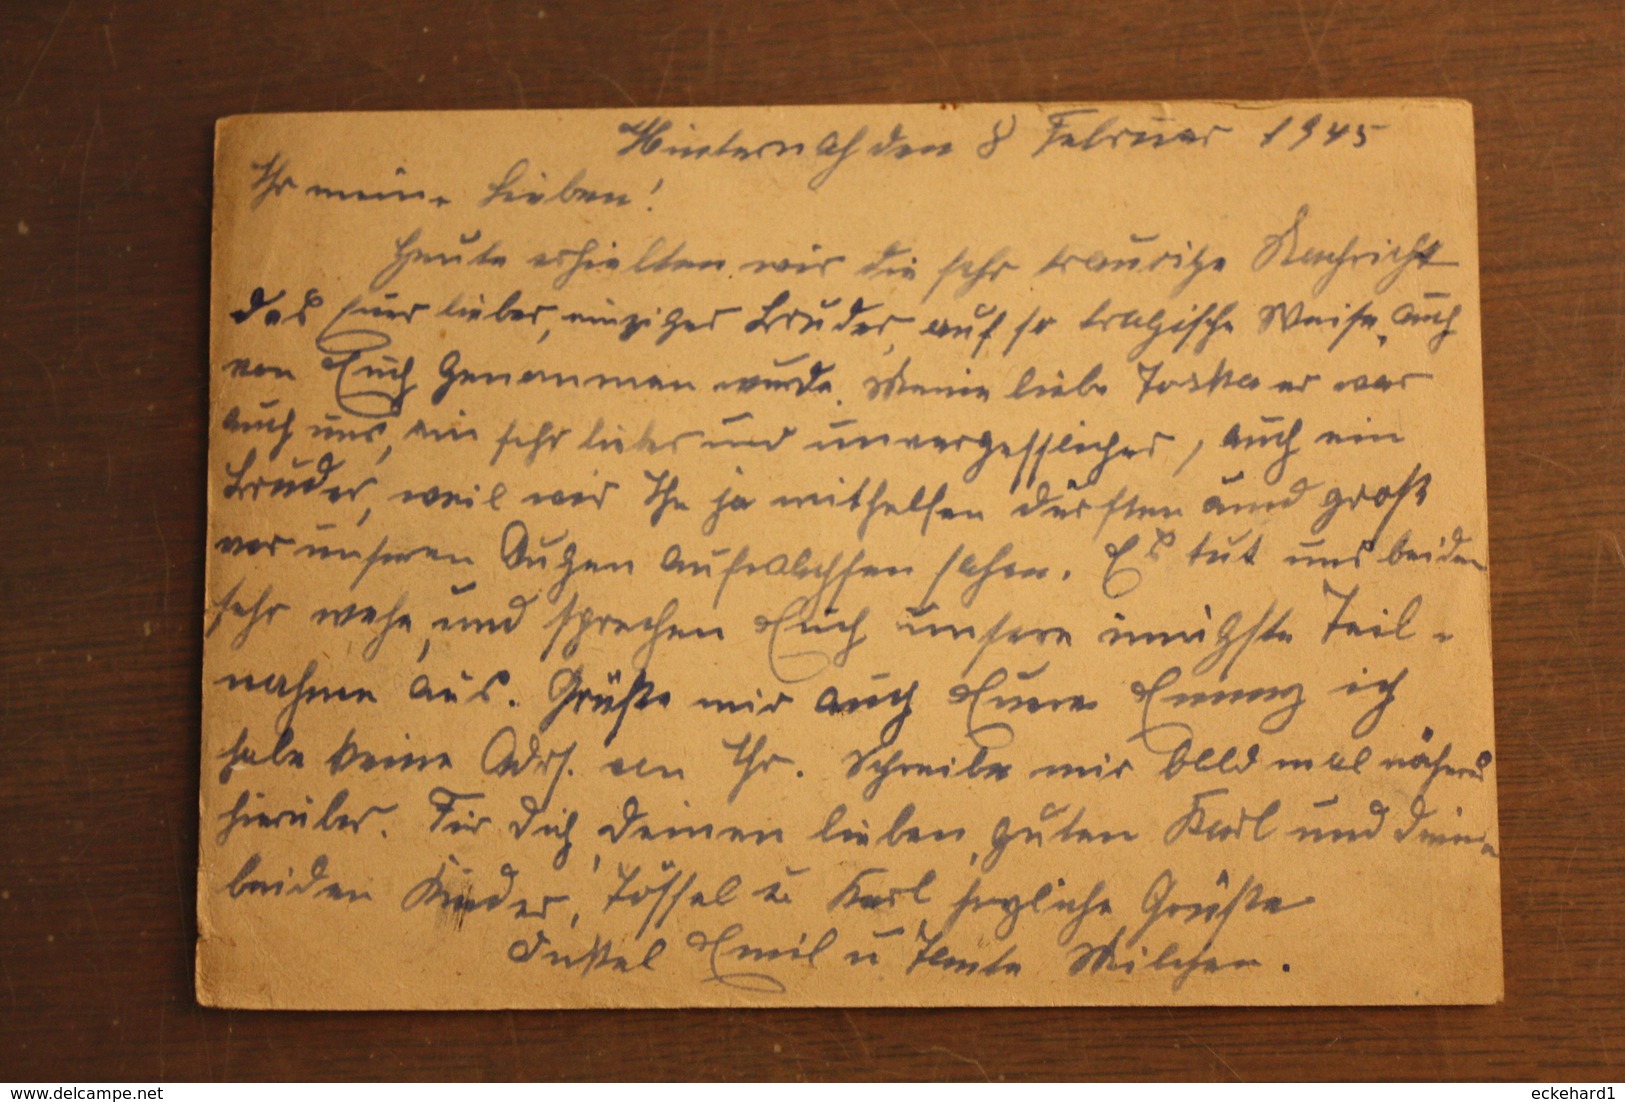 Hinternah den 8 Februar 1945
Ihr meine Lieben!
Heute erhielten wir die sehr traurige Nachricht
das Euer lieber, einziger Bruder, auf so tragische Weise, auch
von Euch genommen wurde. Meine liebe Toska er war
auch uns, ein sehr lieber und unvergesslicher, auch ein
Bruder, weil wir Ihn ja mithelfen durften und groß
vor unseren Augen aufwachsen sahen. Es tut uns beiden
sehr wehe, und sprechen Euch unsere innigste Teil-
nahme aus. Grüße mir auch Euere Emmy ich
habe keine Adrs. von Ihr. Schreibe mir bald mal näheres
hierüber. Für Dich, Deinen lieben, guten Karl und Deine
beiden Kinder, Tössel u. Karl, herzliche Grüße
Onkel Emil u Tante Milchen.
eckehard1
http://www.delcampe.net